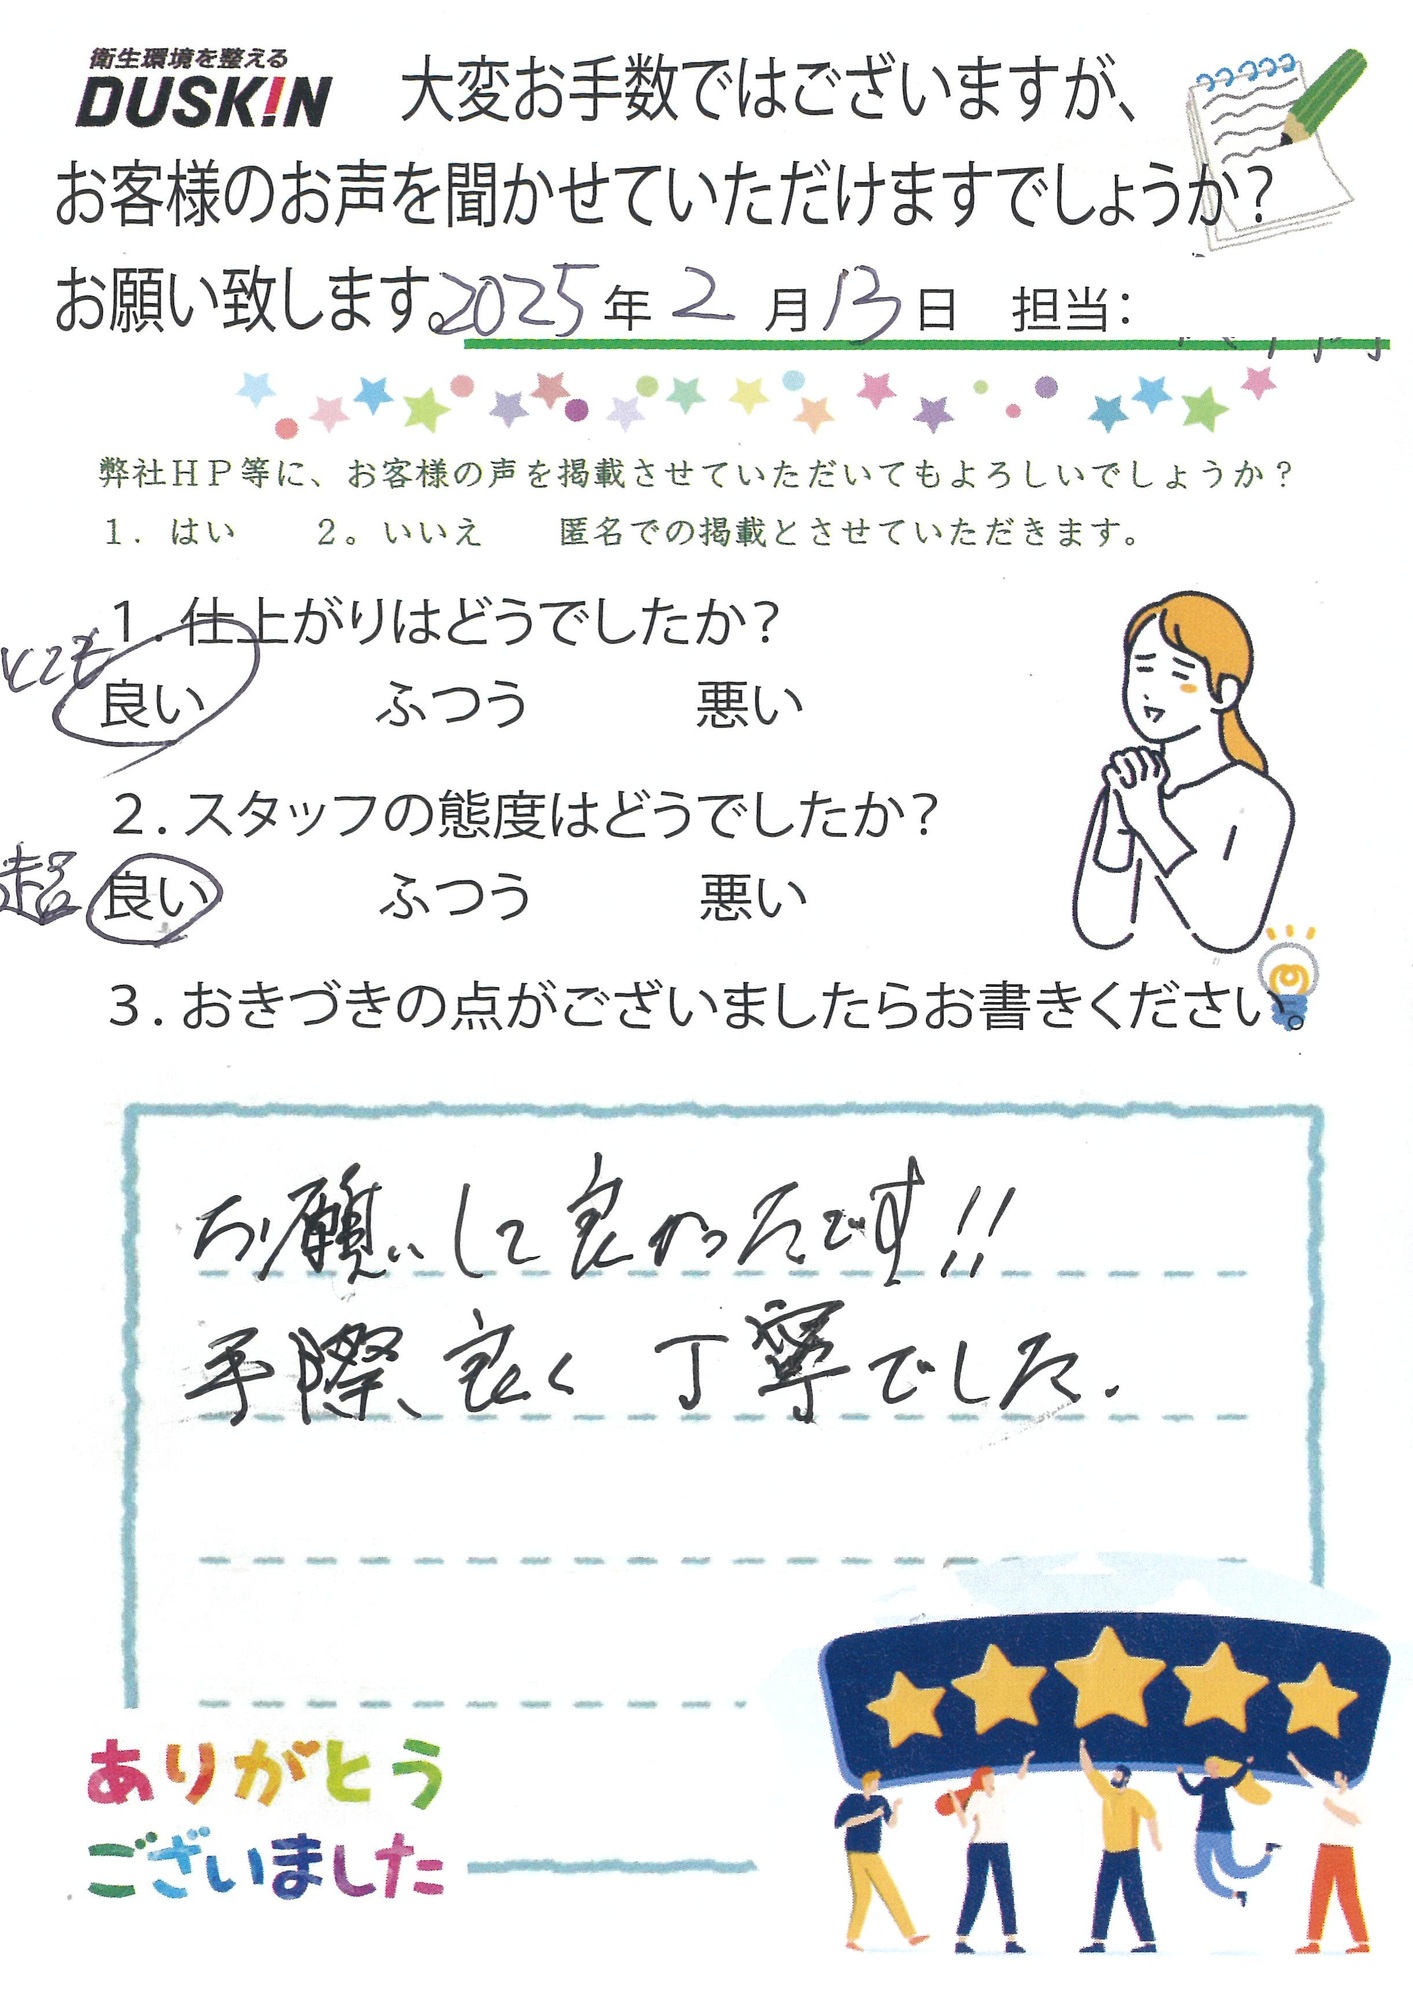 衛生環境を整える
DUSK!N
大変お手数ではございますが、
お客様のお声を聞かせていただけますでしょうか？
お願い致します。2025年2月13日 担当：
弊社ＨＰ等に、お客様の声を掲載させていただいてもよろしいでしょうか？
１．はい　２。いいえ　匿名での掲載とさせていただきます。
１．仕上がりはどうでしたか？
とても 良い ふつう 悪い
２．スタッフの態度はどうでしたか？
超 良い ふつう 悪い
３．おきづきの点がございましたらお書きください。
お願いして良かったです!!
手際、良く 丁寧でした.
ありがとう
ございました